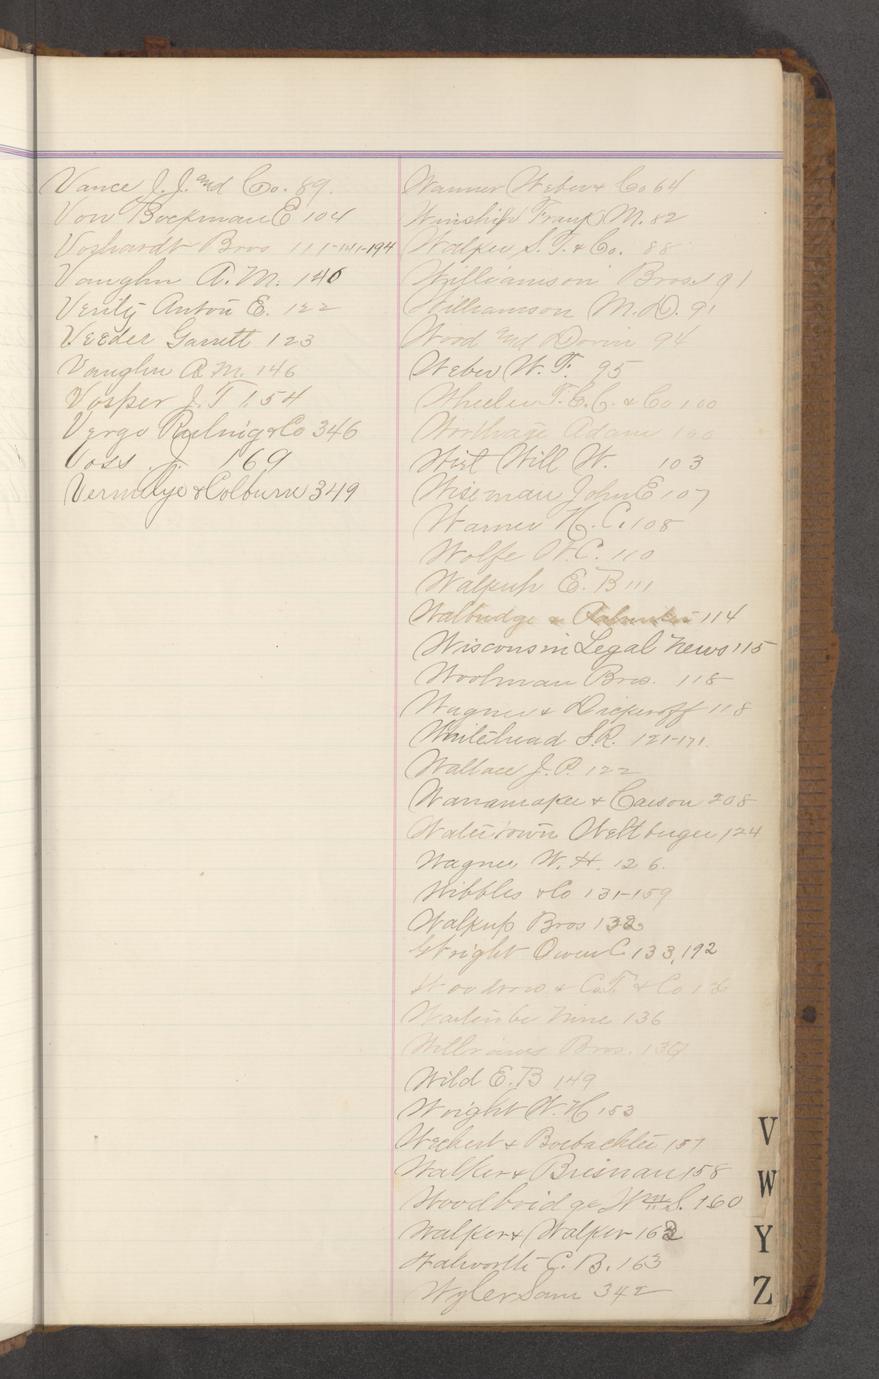 Vance J. J. and Co. 89.
Von Bockman E 104
Vozhardt Bros 111-141-194
Vaughn A. M. 146
Verity Anton E. 122
Veeder Garrett 123
Vaughn A M. 146
Vosper J. T 154
Vergo Ruhnig & Co 346
Voss J. 169
Vermilye & Colburn 349
Wanner Weber & Co 64
Winship Frank M. 82
Walker S. T. & Co. 88
Williamson Bros. 91
Williamson M. D. 91
Wood and Dorin 94
Weber W. F. 95
Wheeler T. C. C. & Co 100
Worthage Adam 100
Wirt Will W. 103
Wiseman John E 107
Warner H. C. 108
Wolfe W. C. 110
Walkup E. B 111
Walbridge & 114
Wisconsin Legal News 115
Woolman Bros. 118
Wagner & Dickeroff 118
Whitehead S. R. 121-171.
Wallace J. P. 122
Wanamaker & Carson 208
Watertown Weltburger 124
Wagner W. H. 126.
Wibbles & Co 131-159
Walkup Bros 132
Wright Owen C. 133, 192
Woodrow & Co
136
Williams Bros. 137
Wild E. B 149
Wright W. H 153
Weckert & Boebachter 157
Walker & Bresnan 158
Woodbridge Wm S. 160
Walker & Walker 162
Walworth C. B. 163
Wyler Sam 342
V
W
Y
Z